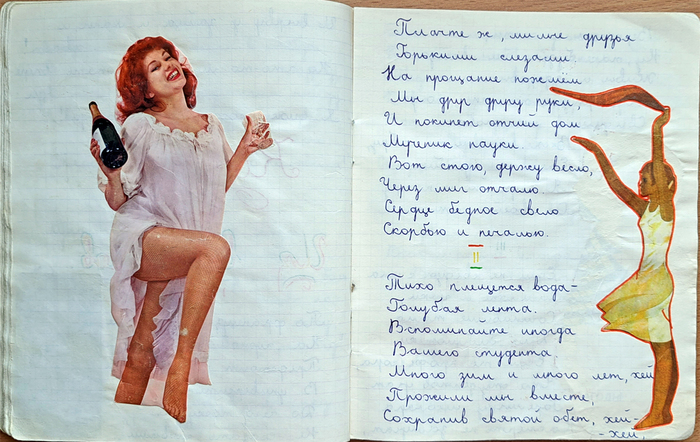 Плачте ж, милые друзья
Горькими слезами.
На прощание пожмём
Мы друг другу руки,
И покинет отчий дом
Мученик науки.
Вот стою, держу весло,
Через миг отчалю.
Сердце бедное свело
Скорбью и печалью.
II
Тихо плещется вода-
Голубая лента.
Вспоминайте иногда
Вашего студента.
Много зим и много лет, хей
Прожили мы вместе,
Сохранив святой обет, хей-
-хей,